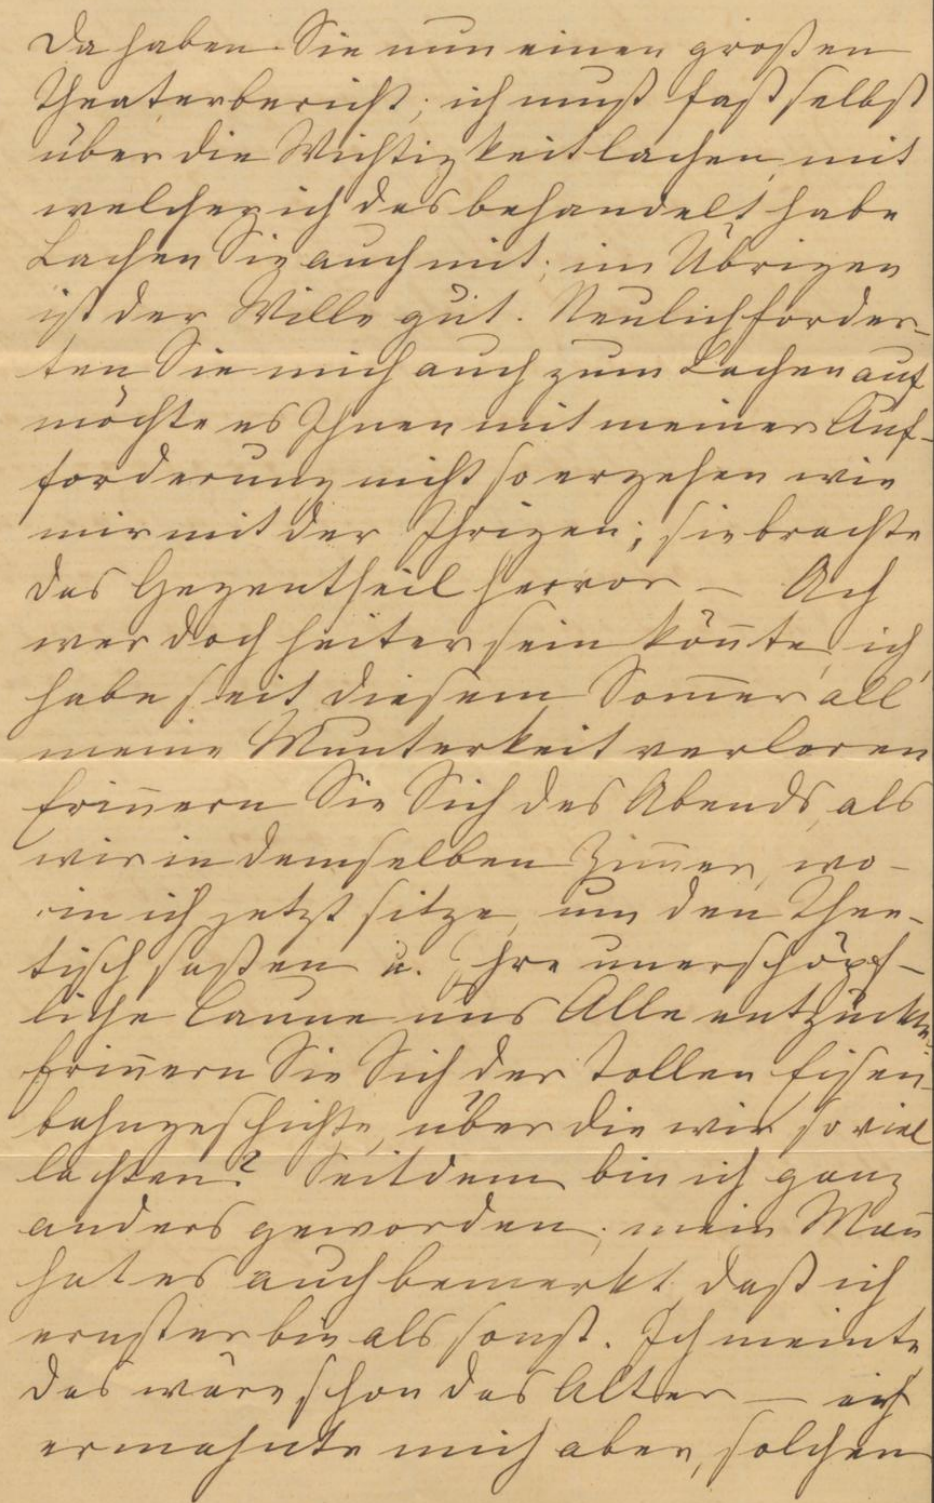 Da haben Sie nun einen großen
Theaterbericht; ich muß fast selbst
über die Wichtigkeit lachen, mit
welcher ich das behandelt habe
Lachen Sie auch mit; im Übrigen
ist der Wille gut. Neulich forder-
ten Sie mich auch zum Lachen auf
möchte es Ihnen mit meiner Auf-
forderung nicht so ergehen wie
mir mit der Ihrigen; sie brachte
das Gegentheil hervor — Ach
wer doch heiter sein kön̅te, ich
habe seit diesem Som̅er all'
meine Munterkeit verloren
Erin̅ern Sie Sich des Abends, als
wir in demselben Zim̅er, wo-
rin ich jetzt sitze, um den Thee-
tisch saßen u. Ihre unerschöpf-
liche Laune uns Alle entzückte?
Erin̅ern Sie Sich der tollen Eisen-
bahngeschichte, über die wir so viel
lachten? Seitdem bin ich ganz
anders geworden; mein Man̅
hat es auch bemerkt, daß ich
ernster bin als sonst. Ich meinte
das wäre schon das Alter — er
ermahnte mich aber, solchen